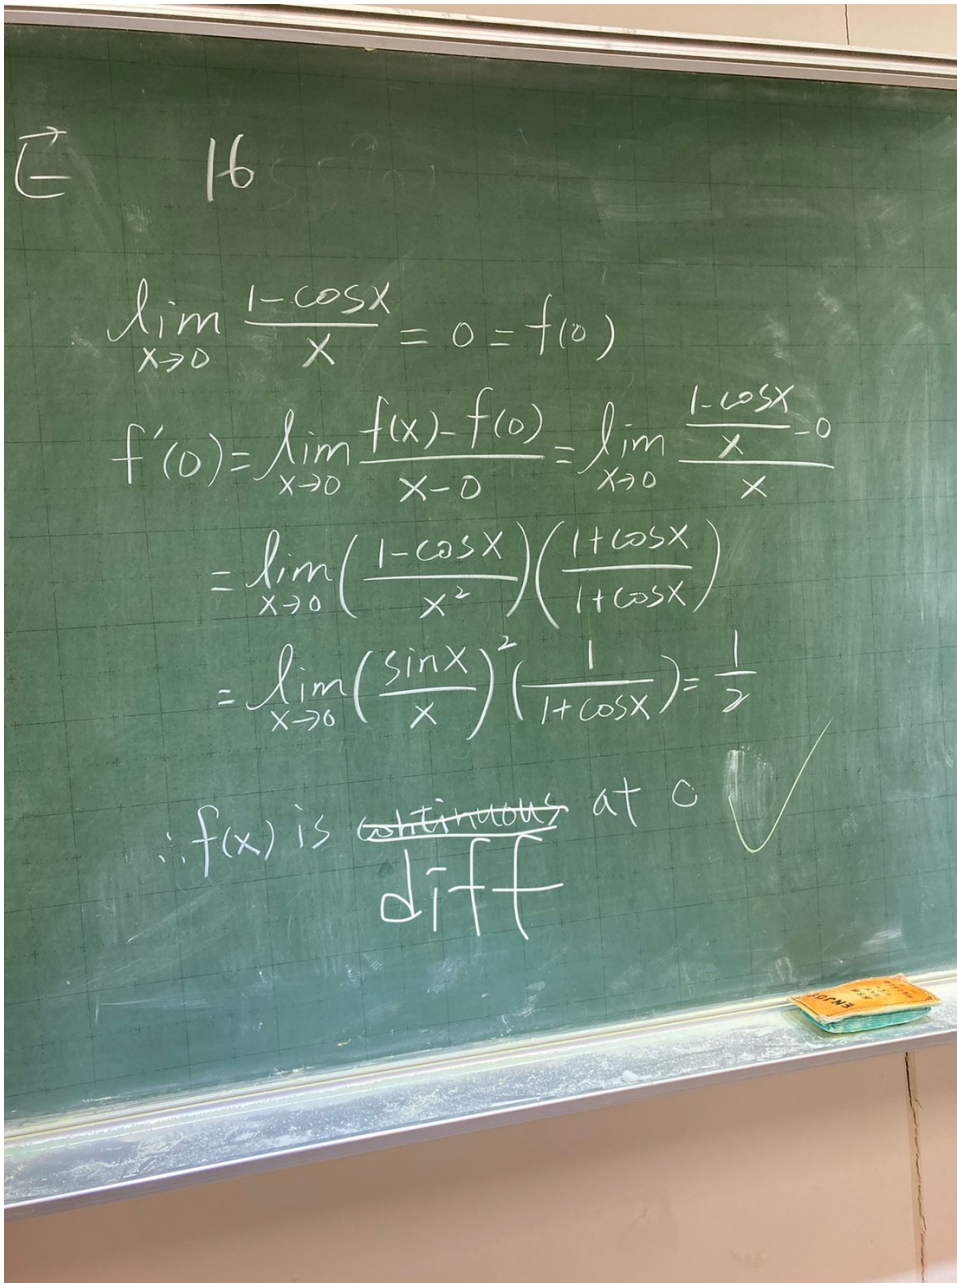 E 16
lim x→0 (1-cosx)/x = 0 = f(0)
f'(0) = lim x→0 (f(x)-f(0))/(x-0) = lim x→0 ((1-cosx)/x - 0)/x
= lim x→0 ((1-cosx)/x²)((1+cosx)/(1+cosx))
= lim x→0 (sinx/x)² (1/(1+cosx)) = 1/2
∴ f(x) is continuous at 0
diff
ENJOY